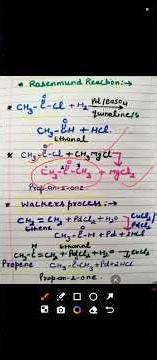 • Rosenmund Reaction:→
O
* CH3-C-Cl + H2 Pd/BaSO4
quinoline/S
O
CH3-C-H + HCl.
Ethanal
O
* CH3-C-Cl + CH3MgCl
O
CH3-C-CH3 + MgCl2
Propan-2-one
• Walker's process:→
CH2=CH2 + PdCl2 + H2O CuCl2/
Ethene PdCl2
O
CH3-C-H + Pd + 2HCl
Ethanal
H
CH3-C=CH2 + PdCl2 + H2O CuCl2
Propene CH3-C-CH3 + Pd + 2HCl
Propan-2-one.